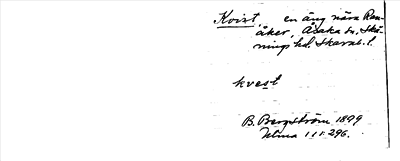 Kvist, en äng nära Ran-
åker, Åsaka sn, Skå-
nings hd. Skarab. l.
kvest
B. Bergström 1899
Filma 111:296.